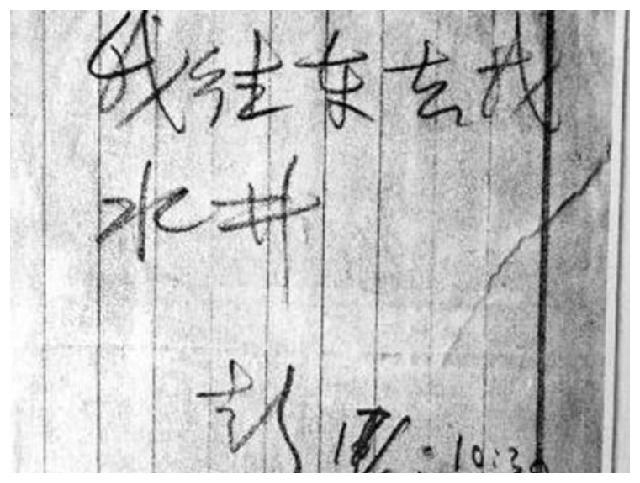 我往东去找
水井
彭 17/ 10:30